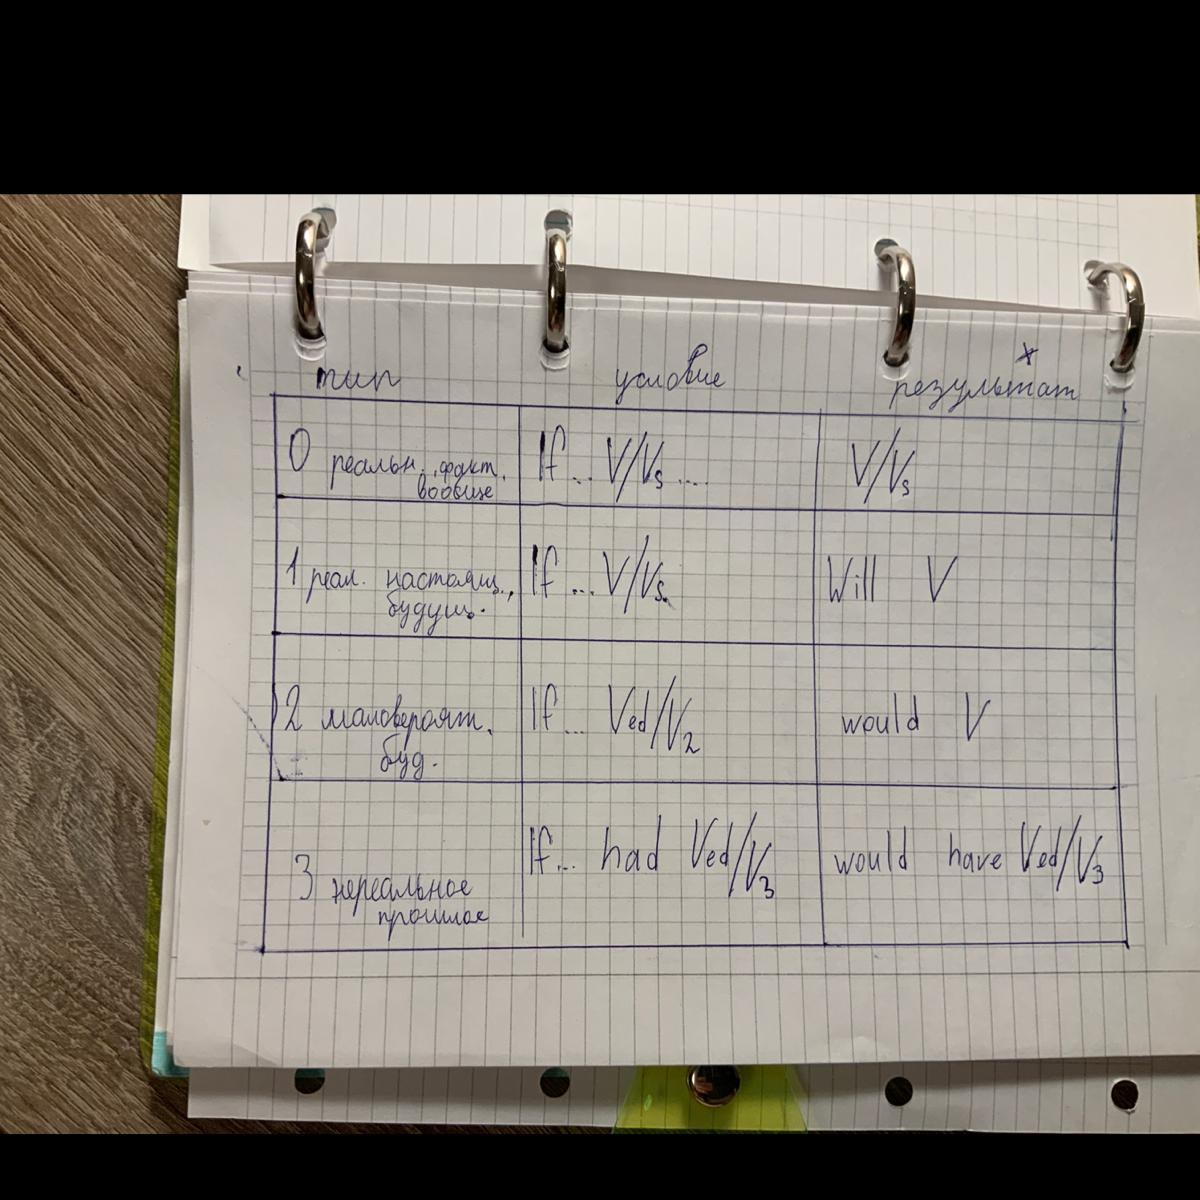 тип условие результат
0 реальн. факт. If ... V/Vs .... V/Vs
вообще
1 реал. настоящ., If ... V/Vs. Will V
будущ.
2 маловероят. If ... Ved/V2 would V
буд.
3 нереальное If... had Ved/V3 would have Ved/V3
прошлое